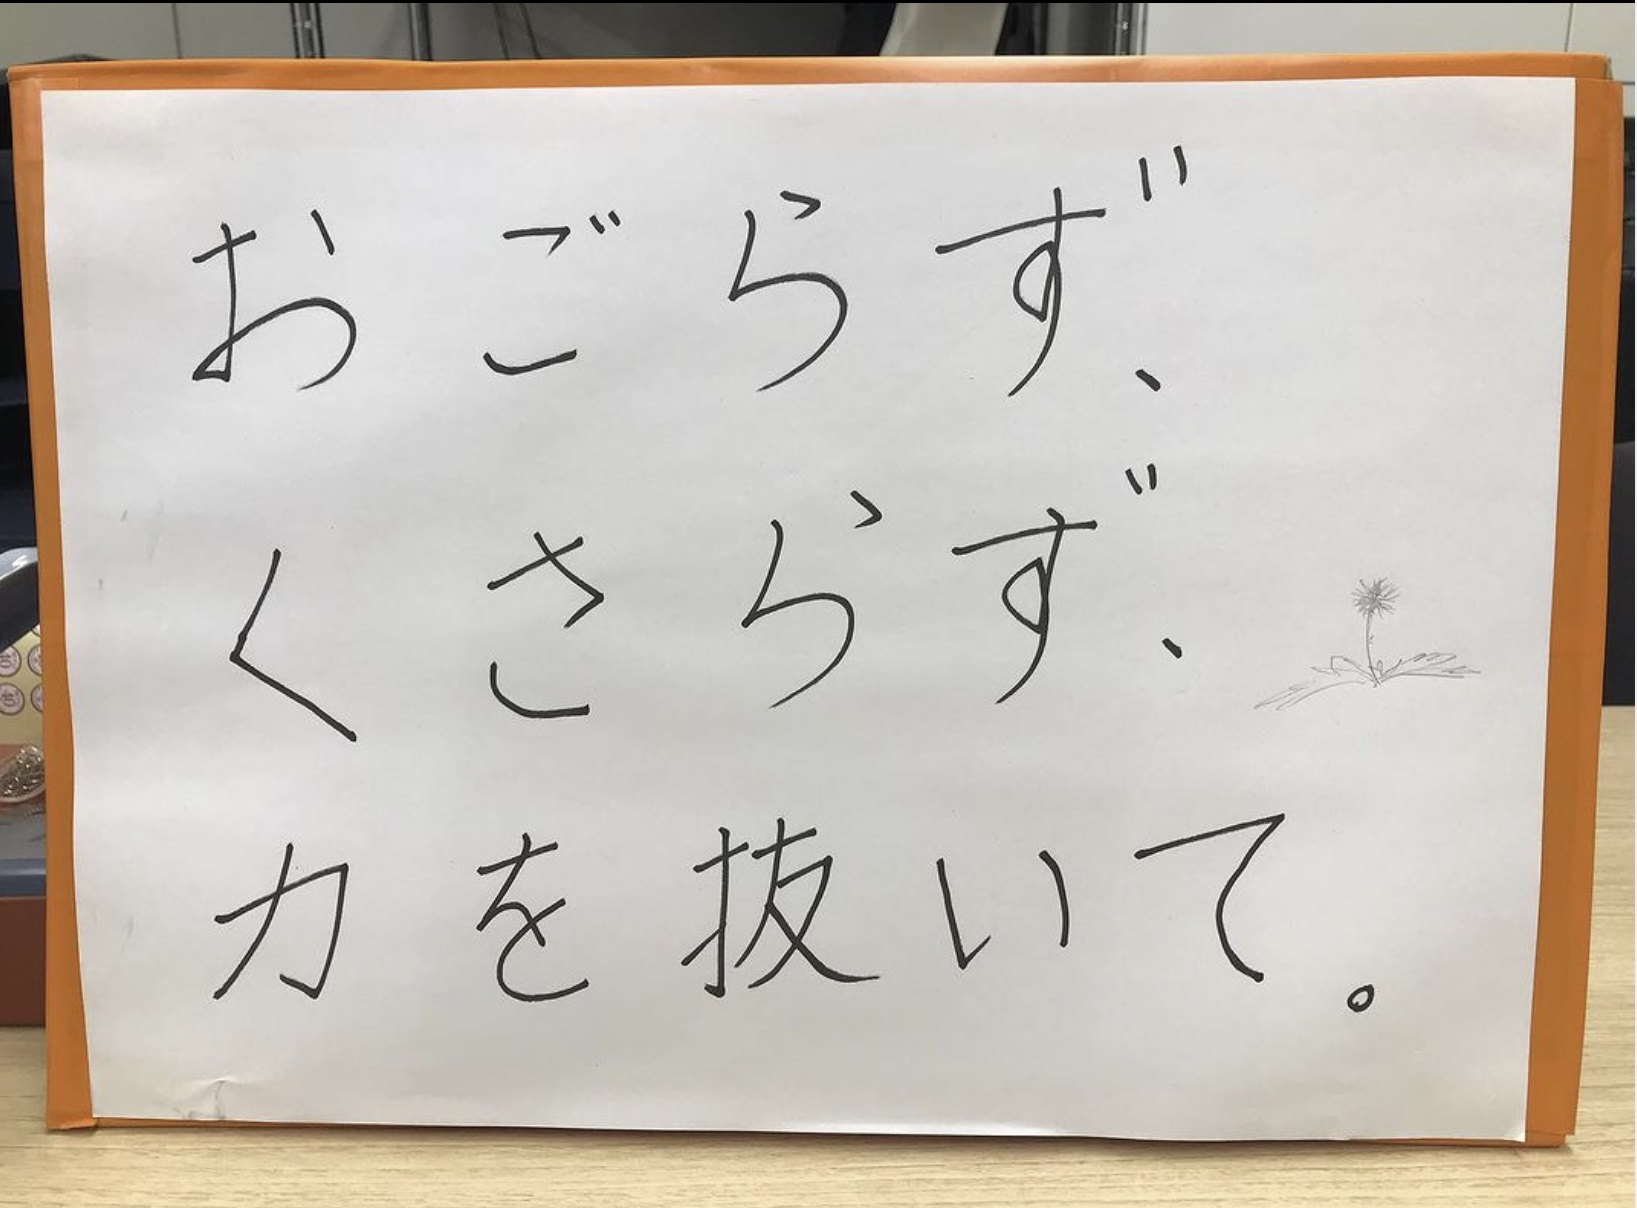 おごらず、
くさらず、
力を抜いて。